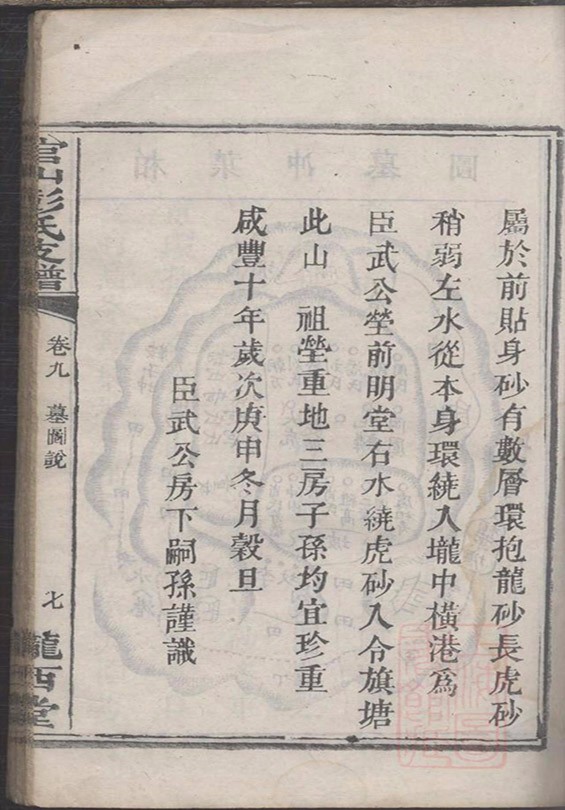 屬於前貼身砂有數層環抱龍砂長虎砂
稍弱左水從本身環繞入壠中橫港為
臣武公塋前明堂右水繞虎砂入令旗塘
此山　祖塋重地三房子孫均宜珍重
咸豐十年歲次庚申冬月穀旦
臣武公房下嗣孫謹識
官山彭氏支譜
卷九　墓圖說
七
隴西堂